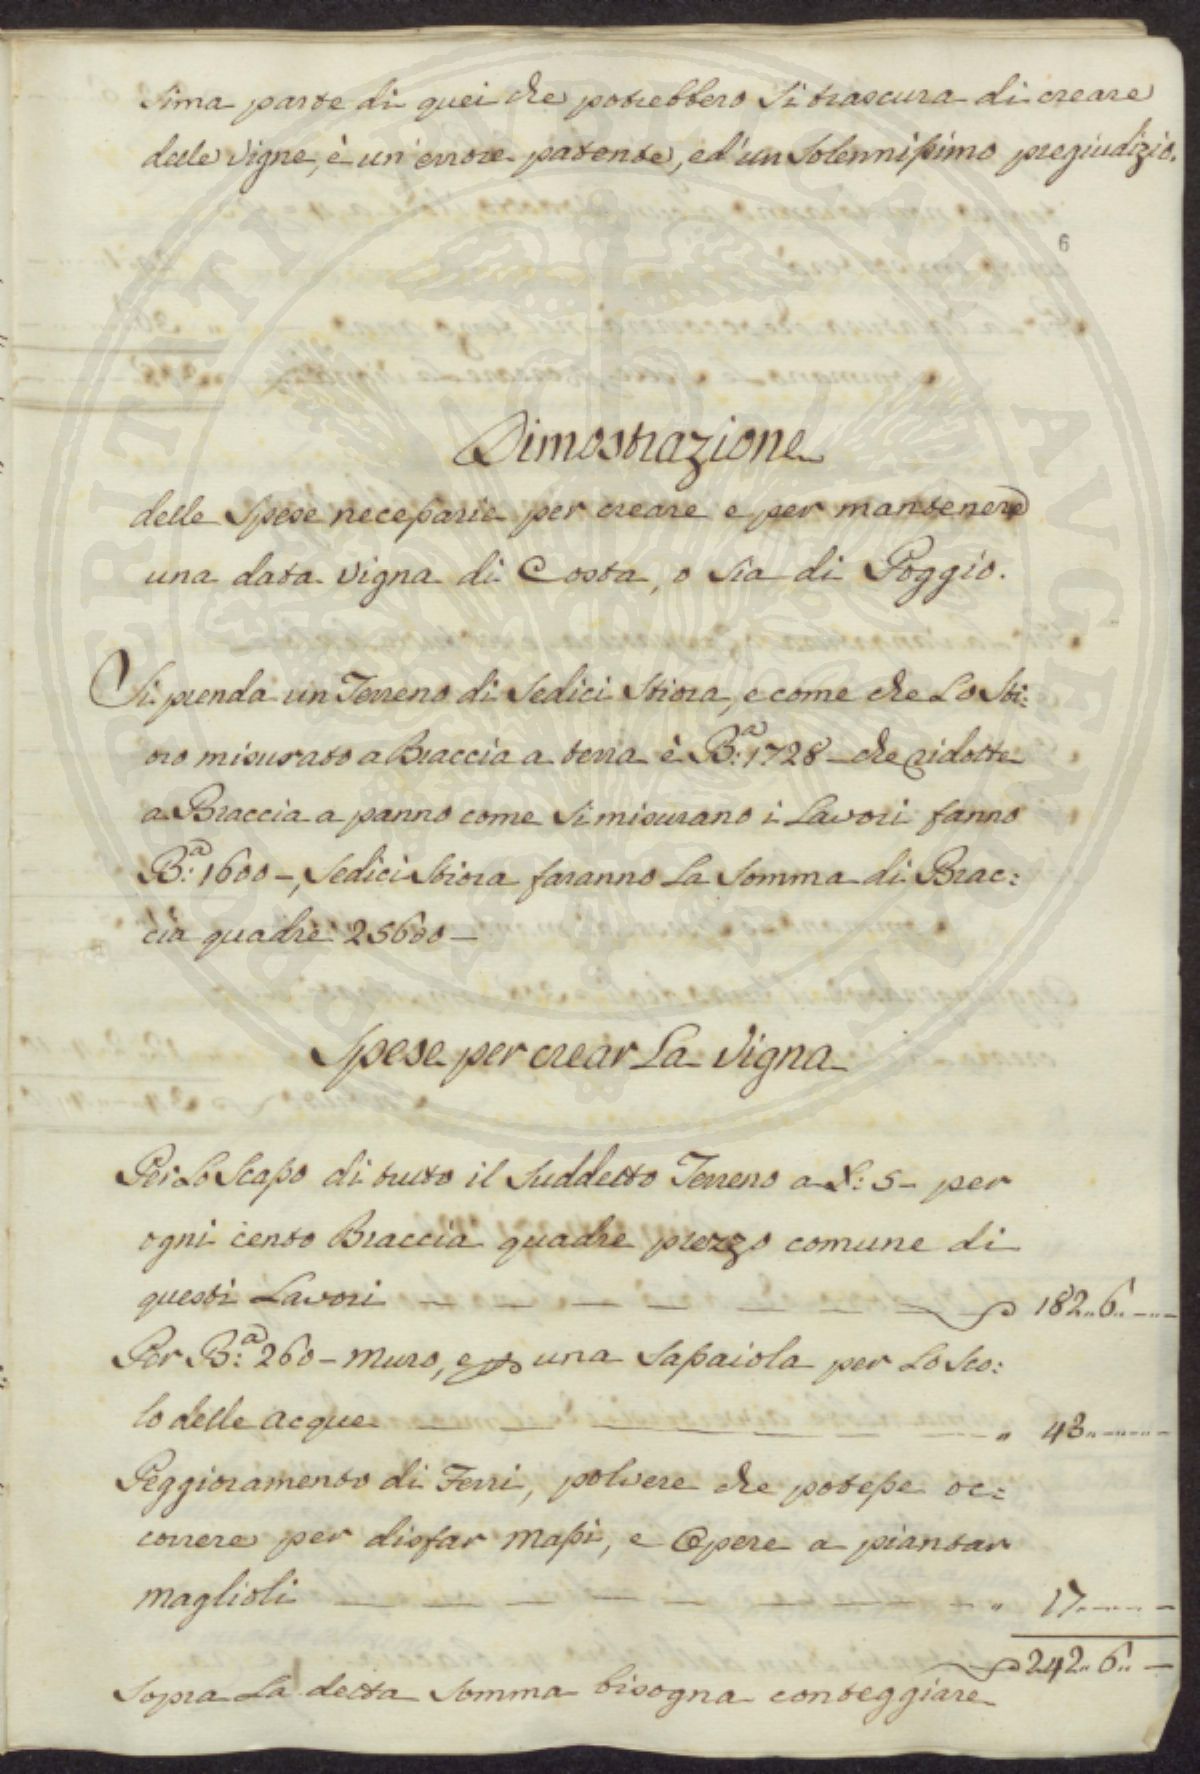 sima parte di quei che potrebbero si trascura di creare
delle Vigne, è un'errore patente, ed'un Solennissimo pregiudizio.
6
Dimostrazione
delle Spese necessarie per creare e per mantenere
una data Vigna di Costa, o sia di Poggio.
Si prenda un Terreno di Sedici Stiora, e come che Lo Sti:
oro misurato a Braccia a terra è B.a 1728 - che ridotte
a Braccia a panno come si misurano i Lavori fanno
B.a 1600 -, Sedici Stiora faranno La Somma di Brac:
cia quadre 25600 -
Spese per crear La Vigna
Per Lo Scasso di tutto il Suddetto Terreno a £: 5 - per
ogni cento Braccia quadre prezzo comune di
questi Lavori 182.. 6..
Per B.a 260 - muro, e una Sassaiola per Lo Sco:
lo delle acque " 43..
Peggioramento di Ferri, polvere che potesse oc:
correre per disfar Massi, e Opere a piantar
maglioli " 17..
242.. 6..
Sopra La detta Somma bisogna conteggiare
PROSPERITATI PVBLICAE AVGENDAE